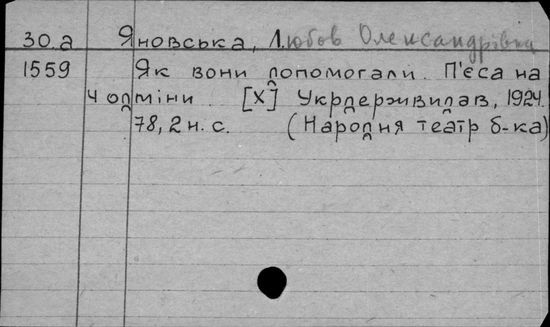 30.а Яновська, Л.юбов Олександрівна
1559 Як вони допомогали. П'єса на
4 одміни. [Х] Укрдержвидав, 1924.
78, 2 н. с. (Народня театр б-ка)